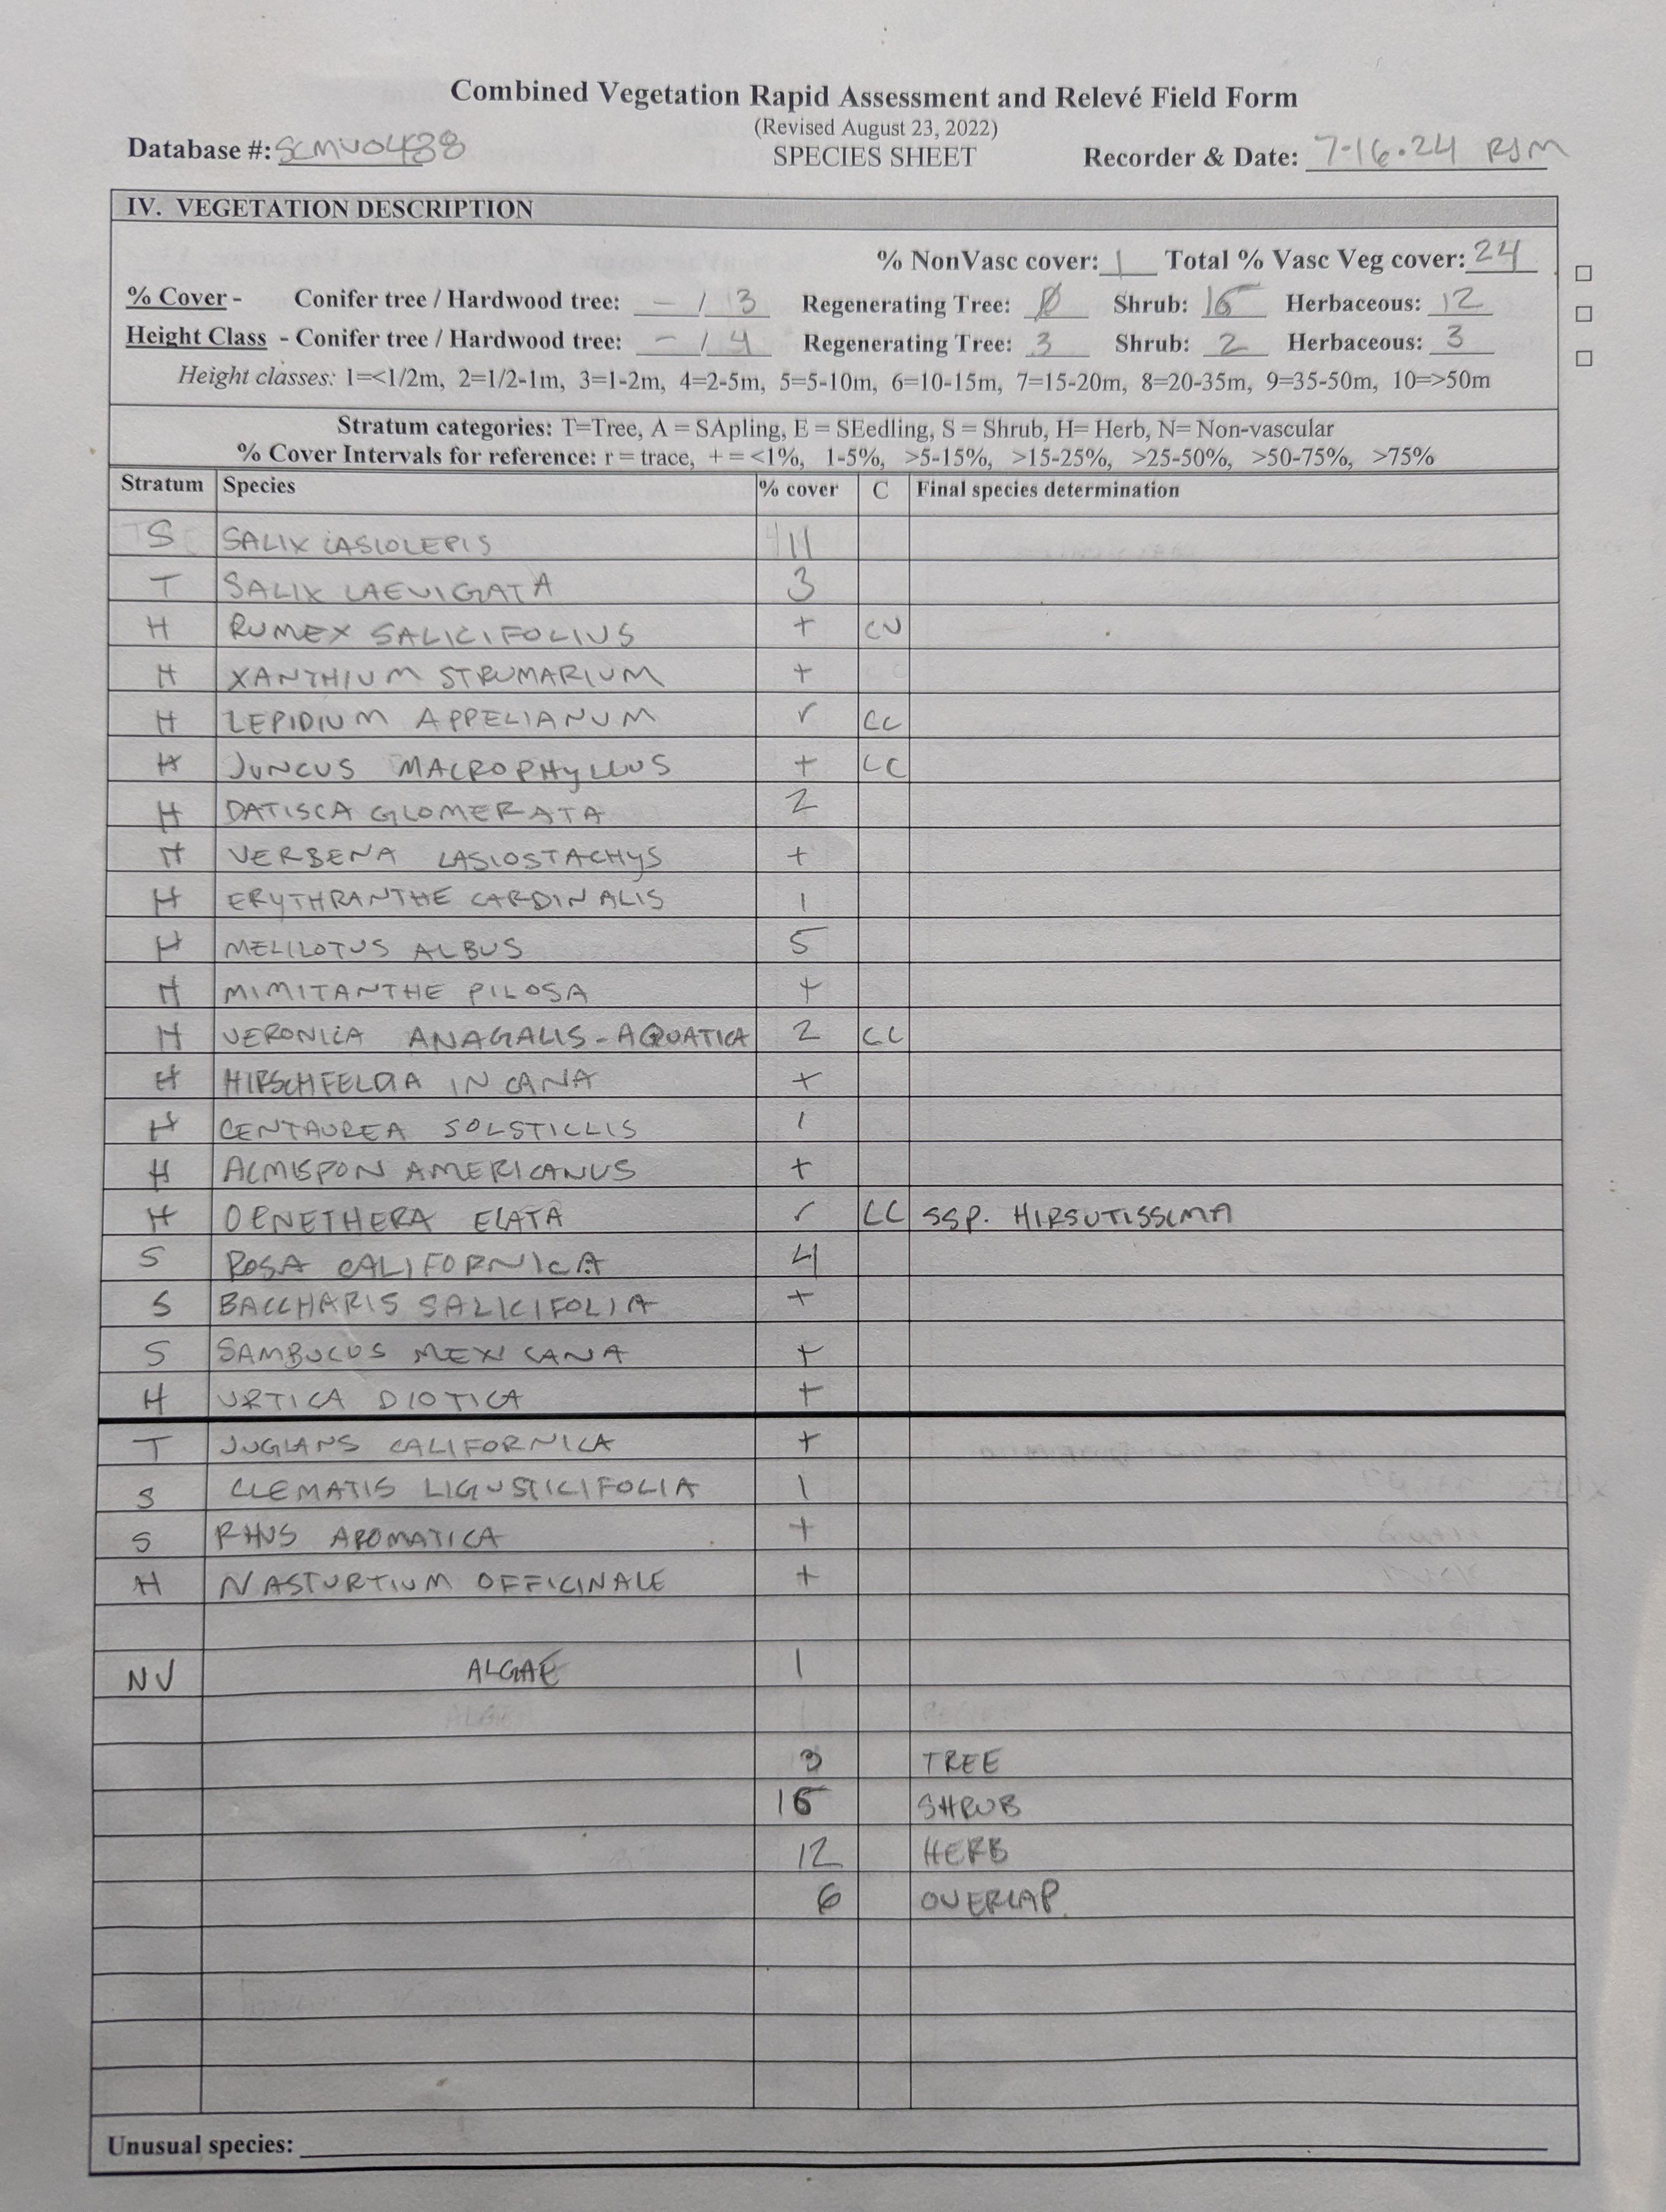 Combined Vegetation Rapid Assessment and Relevé Field Form
(Revised August 23, 2022)
Database #: SCMU0488 SPECIES SHEET Recorder & Date: 7-16-24 RJM
IV. VEGETATION DESCRIPTION
% NonVasc cover: 1 Total % Vasc Veg cover: 24
% Cover - Conifer tree / Hardwood tree: - / 3 Regenerating Tree: Ø Shrub: 15 Herbaceous: 12
Height Class - Conifer tree / Hardwood tree: - / 4 Regenerating Tree: 3 Shrub: 2 Herbaceous: 3
Height classes: 1=<1/2m, 2=1/2-1m, 3=1-2m, 4=2-5m, 5=5-10m, 6=10-15m, 7=15-20m, 8=20-35m, 9=35-50m, 10=>50m
Stratum categories: T=Tree, A = SApling, E = SEedling, S = Shrub, H= Herb, N= Non-vascular
% Cover Intervals for reference: r = trace, + = <1%, 1-5%, >5-15%, >15-25%, >25-50%, >50-75%, >75%
Stratum Species % cover C Final species determination
S SALIX LASIOLEPIS 11
T SALIX LAEVIGATA 3
H RUMEX SALICIFOLIUS + CU
H XANTHIUM STRUMARIUM +
H LEPIDIUM APPELIANUM r CC
H JUNCUS MACROPHYLLUS + CC
H DATISCA GLOMERATA 2
H VERBENA LASIOSTACHYS +
H ERYTHRANTHE CARDINALIS 1
H MELILOTUS ALBUS 5
H MIMITANTHE PILOSA +
H VERONICA ANAGALIS-AQUATICA 2 CC
H HIRSCHFELDIA INCANA +
H CENTAUREA SOLSTILLIS 1
H ACMISPON AMERICANUS +
H OENETHERA ELATA r CC SSP. HIRSUTISSIMA
S ROSA CALIFORNICA 4
S BACCHARIS SALICIFOLIA +
S SAMBUCUS MEXICANA +
H URTICA DIOTICA +
T JUGLANS CALIFORNICA +
S CLEMATIS LIGUSTICIFOLIA 1
S RHUS AROMATICA +
H NASTURTIUM OFFICINALE +
NV ALGAE 1
3 TREE
15 SHRUB
12 HERB
6 OVERLAP
Unusual species: